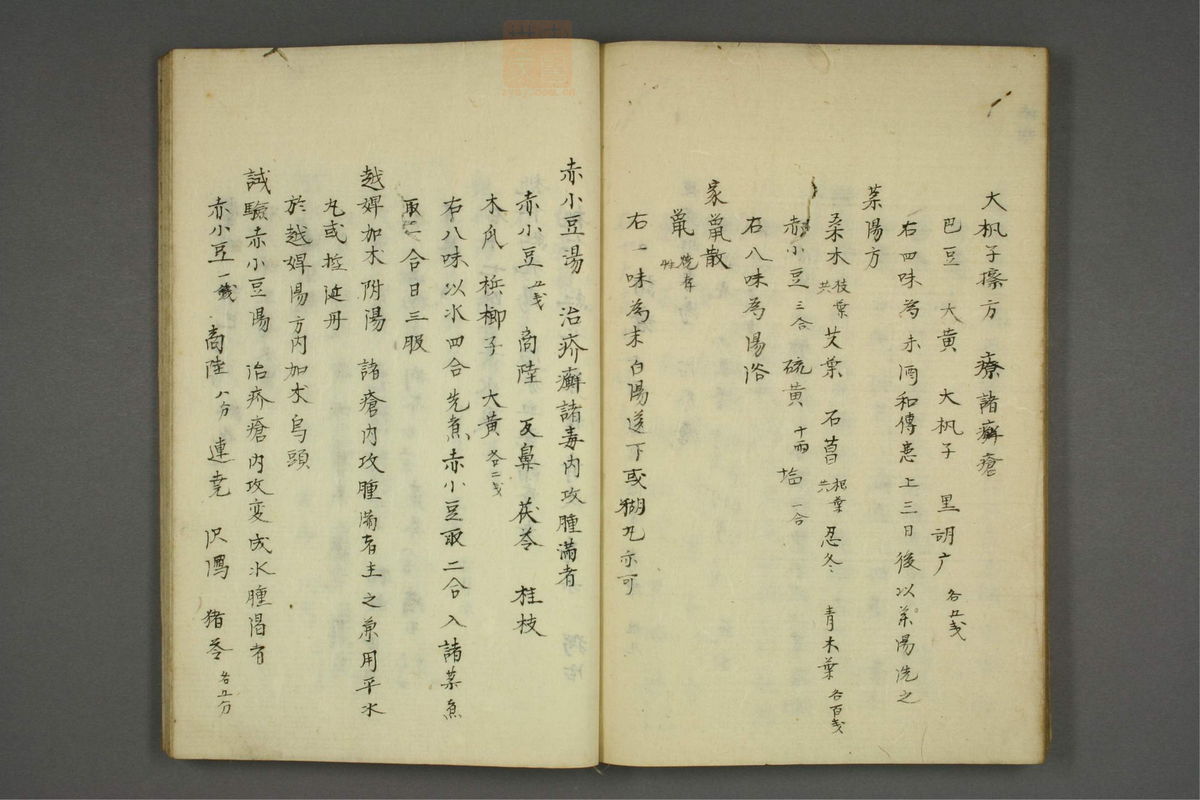 大枫子擦方 療諸癬瘡
巴豆 大黄 大枫子 里胡广 各五戋
右四味為末酒和傳患上三日後以薬湯洗之
薬湯方
桑木 枝葉共 艾葉 石菖 根葉共 忍冬 青木葉 各百戋
赤小豆 三合 硫黄 十両 塩 一合
右八味為湯浴
家鼠散
鼠 焼存性
右一味為末白湯送下或糊丸亦可
赤小豆湯 治疥癬諸毒内攻腫満者
赤小豆 五戋 商陸 反鼻 茯苓 桂枝
木瓜 一 梹榔子 大黄 各二戋
右八味以水四合先煮赤小豆取二合入諸薬煮
取一合日三服
越婢加朮附湯 諸瘡内攻腫満者主之兼用平水
丸或控涎丹
於越婢湯方内加朮烏頭
試驗赤小豆湯 治疥瘡内攻変成水腫渇者
赤小豆 一銭 商陸 八分 連堯 沢瀉 猪苓 各五分